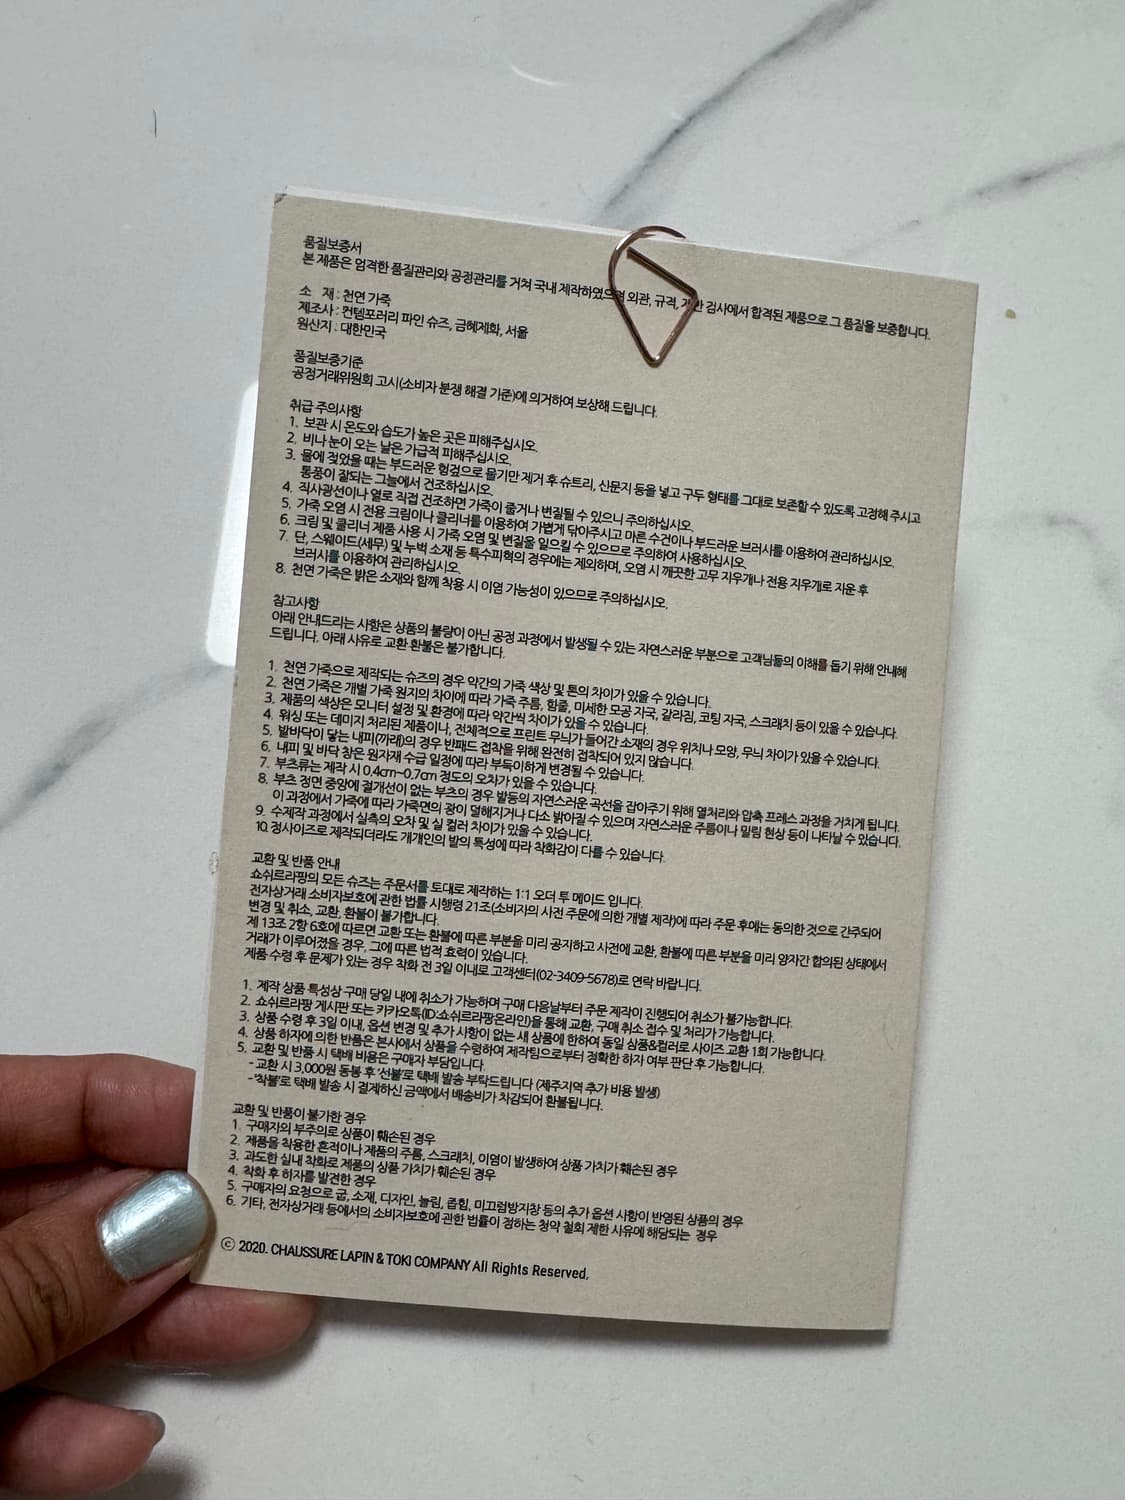 품질보증서
본 제품은 엄격한 품질관리와 공정관리를 거쳐 국내 제작하였으며 외관, 규격, 검사에서 합격된 제품으로 그 품질을 보증합니다.
소 재 : 천연 가죽
제조사 : 컨템포러리 파인 슈즈, 금혜제화, 서울
원산지 : 대한민국
품질보증기준
공정거래위원회 고시(소비자 분쟁 해결 기준)에 의거하여 보상해 드립니다.
취급 주의사항
1. 보관 시 온도와 습도가 높은 곳은 피해주십시오.
2. 비나 눈이 오는 날은 가급적 피해주십시오.
3. 물에 젖었을 때는 부드러운 헝겊으로 물기만 제거 후 슈트리, 신문지 등을 넣고 구두 형태를 그대로 보존할 수 있도록 고정해 주시고
통풍이 잘되는 그늘에서 건조하십시오.
4. 직사광선이나 열로 직접 건조하면 가죽이 줄거나 변질될 수 있으니 주의하십시오.
5. 가죽 오염 시 전용 크림이나 클리너를 이용하여 가볍게 닦아주시고 마른 수건이나 부드러운 브러시를 이용하여 관리하십시오.
6. 크림 및 클리너 제품 사용 시 가죽 오염 및 변질을 일으킬 수 있으므로 주의하여 사용하십시오.
7. 단, 스웨이드(세무) 및 누벅 소재 등 특수피혁의 경우에는 제외하며, 오염 시 깨끗한 고무 지우개나 전용 지우개로 지운 후
브러시를 이용하여 관리하십시오.
8. 천연 가죽은 밝은 소재와 함께 착용 시 이염 가능성이 있으므로 주의하십시오.
참고사항
아래 안내드리는 사항은 상품의 불량이 아닌 공정 과정에서 발생될 수 있는 자연스러운 부분으로 고객님들의 이해를 돕기 위해 안내해
드립니다. 아래 사유로 교환 환불은 불가합니다.
1. 천연 가죽으로 제작되는 슈즈의 경우 약간의 가죽 색상 및 톤의 차이가 있을 수 있습니다.
2. 천연 가죽은 개별 가죽 원지의 차이에 따라 가죽 주름, 힘줄, 미세한 모공 자국, 갈라짐, 코팅 자국, 스크래치 등이 있을 수 있습니다.
3. 제품의 색상은 모니터 설정 및 환경에 따라 약간씩 차이가 있을 수 있습니다.
4. 워싱 또는 데미지 처리된 제품이나, 전체적으로 프린트 무늬가 들어간 소재의 경우 위치나 모양, 무늬 차이가 있을 수 있습니다.
5. 발바닥이 닿는 내피(까래)의 경우 반패드 접착을 위해 완전히 접착되어 있지 않습니다.
6. 내피 및 바닥 창은 원자재 수급 일정에 따라 부득이하게 변경될 수 있습니다.
7. 부츠류는 제작 시 0.4cm~0.7cm 정도의 오차가 있을 수 있습니다.
8. 부츠 정면 중앙에 절개선이 없는 부츠의 경우 발등의 자연스러운 곡선을 잡아주기 위해 열처리와 압축 프레스 과정을 거치게 됩니다.
이 과정에서 가죽에 따라 가죽면의 광이 덜해지거나 다소 밝아질 수 있으며 자연스러운 주름이나 밀림 현상 등이 나타날 수 있습니다.
9. 수제작 과정에서 실측의 오차 및 실 컬러 차이가 있을 수 있습니다.
10. 정사이즈로 제작되더라도 개개인의 발의 특성에 따라 착화감이 다를 수 있습니다.
교환 및 반품 안내
쇼쉬르라팡의 모든 슈즈는 주문서를 토대로 제작하는 1:1 오더 투 메이드 입니다.
전자상거래 소비자보호에 관한 법률 시행령 21조(소비자의 사전 주문에 의한 개별 제작)에 따라 주문 후에는 동의한 것으로 간주되어
변경 및 취소, 교환, 환불이 불가합니다.
제 13조 2항 6호에 따르면 교환 또는 환불에 따른 부분을 미리 공지하고 사전에 교환, 환불에 따른 부분을 미리 양자간 합의된 상태에서
거래가 이루어졌을 경우, 그에 따른 법적 효력이 있습니다.
제품 수령 후 문제가 있는 경우 착화 전 3일 이내로 고객센터(02-3409-5678)로 연락 바랍니다.
1. 제작 상품 특성상 구매 당일 내에 취소가 가능하며 구매 다음날부터 주문 제작이 진행되어 취소가 불가능합니다.
2. 쇼쉬르라팡 게시판 또는 카카오톡(ID:쇼쉬르라팡온라인)을 통해 교환, 구매 취소 접수 및 처리가 가능합니다.
3. 상품 수령 후 3일 이내, 옵션 변경 및 추가 사항이 없는 새 상품에 한하여 동일 상품&컬러로 사이즈 교환 1회 가능합니다.
4. 상품 하자에 의한 반품은 본사에서 상품을 수령하여 제작팀으로부터 정확한 하자 여부 판단 후 가능합니다.
5. 교환 및 반품 시 택배 비용은 구매자 부담입니다.
- 교환 시 3,000원 동봉 후 '선불'로 택배 발송 부탁드립니다 (제주지역 추가 비용 발생)
- '착불'로 택배 발송 시 결제하신 금액에서 배송비가 차감되어 환불됩니다.
교환 및 반품이 불가한 경우
1. 구매자의 부주의로 상품이 훼손된 경우
2. 제품을 착용한 흔적이나 제품의 주름, 스크래치, 이염이 발생하여 상품 가치가 훼손된 경우
3. 과도한 실내 착화로 제품의 상품 가치가 훼손된 경우
4. 착화 후 하자를 발견한 경우
5. 구매자의 요청으로 굽, 소재, 디자인, 늘림, 좁힘, 미끄럼방지창 등의 추가 옵션 사항이 반영된 상품의 경우
6. 기타, 전자상거래 등에서의 소비자보호에 관한 법률이 정하는 청약 철회 제한 사유에 해당되는 경우
ⓒ 2020. CHAUSSURE LAPIN & TOKI COMPANY All Rights Reserved.